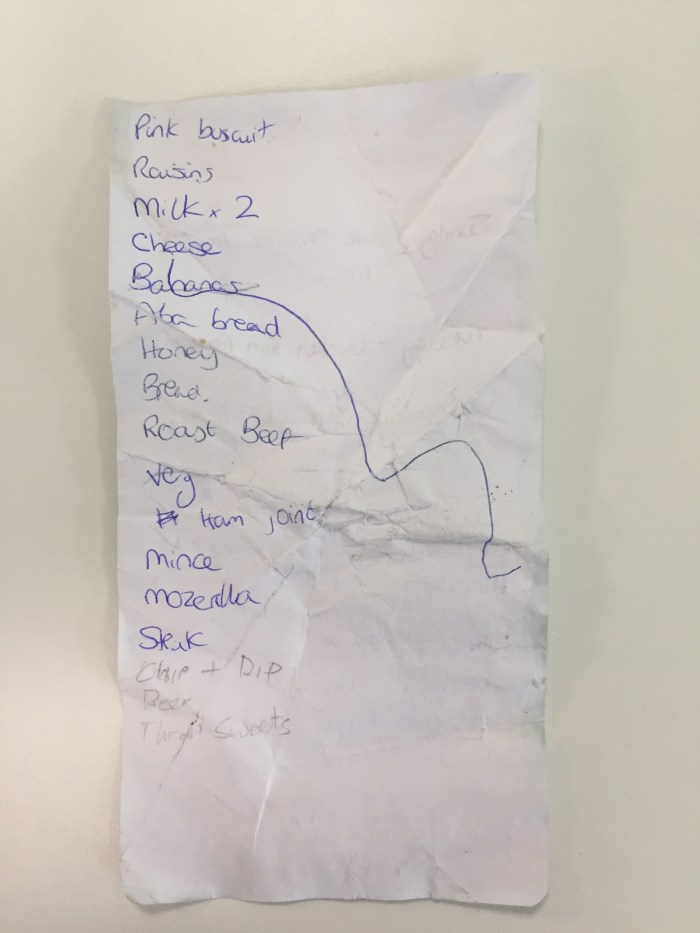 Pink buscuit
Raisins
Milk x 2
Cheese
Babanas
Aba bread
Honey
Bread.
Roast Beef
Veg
Ham joint
Mince
Mozerilla
Steak
Chip + Dip
Beer
Throat Sweets